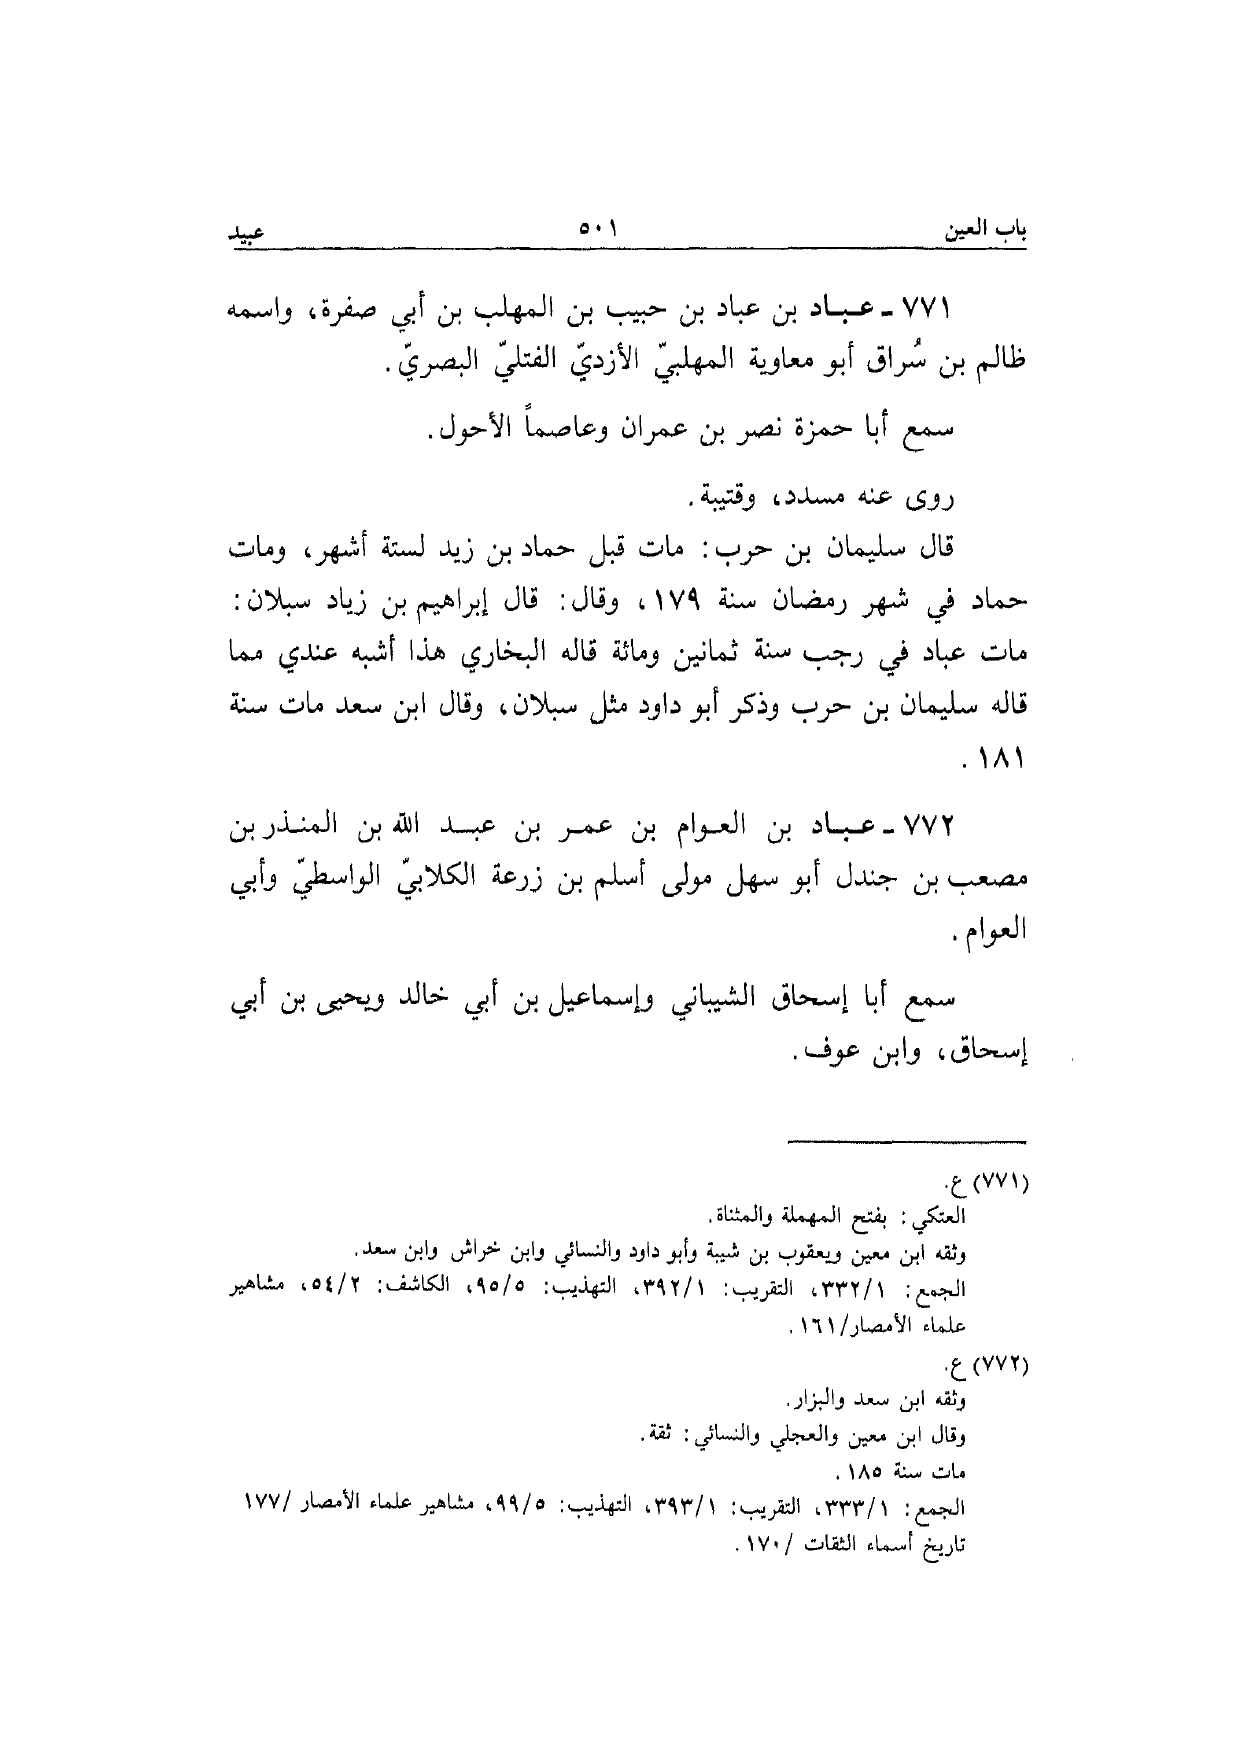 باب العين ٥٠١ عبيد
٧٧١ ـ عباد بن عباد بن حبيب بن المهلب بن أبي صفرة، واسمه
ظالم بن سُراق أبو معاوية المهلبيّ الأزديّ الفتليّ البصريّ.
سمع أبا حمزة نصر بن عمران وعاصماً الأحول.
روى عنه مسدد، وقتيبة.
قال سليمان بن حرب: مات قبل حماد بن زيد لستة أشهر، ومات
حماد في شهر رمضان سنة ١٧٩، وقال: قال إبراهيم بن زياد سبلان:
مات عباد في رجب سنة ثمانين ومائة قاله البخاري هذا أشبه عندي مما
قاله سليمان بن حرب وذكر أبو داود مثل سبلان، وقال ابن سعد مات سنة
١٨١.
٧٧٢ ـ عباد بن العوام بن عمر بن عبد الله بن المنذر بن
مصعب بن جندل أبو سهل مولى أسلم بن زرعة الكلابيّ الواسطيّ وأبي
العوام.
سمع أبا إسحاق الشيباني وإسماعيل بن أبي خالد ويحيى بن أبي
إسحاق، وابن عوف.
(٧٧١) ع.
العتكي: بفتح المهملة والمثناة.
وثقه ابن معين ويعقوب بن شيبة وأبو داود والنسائي وابن خراش وابن سعد.
الجمع: ٣٣٢/١، التقريب: ٣٩٢/١، التهذيب: ٩٥/٥، الكاشف: ٥٤/٢، مشاهير
علماء الأمصار/١٦١.
(٧٧٢) ع.
وثقه ابن سعد والبزار.
وقال ابن معين والعجلي والنسائي: ثقة.
مات سنة ١٨٥.
الجمع: ٣٣٣/١، التقريب: ٣٩٣/١، التهذيب: ٩٩/٥، مشاهير علماء الأمصار /١٧٧
تاريخ أسماء الثقات /١٧٠.